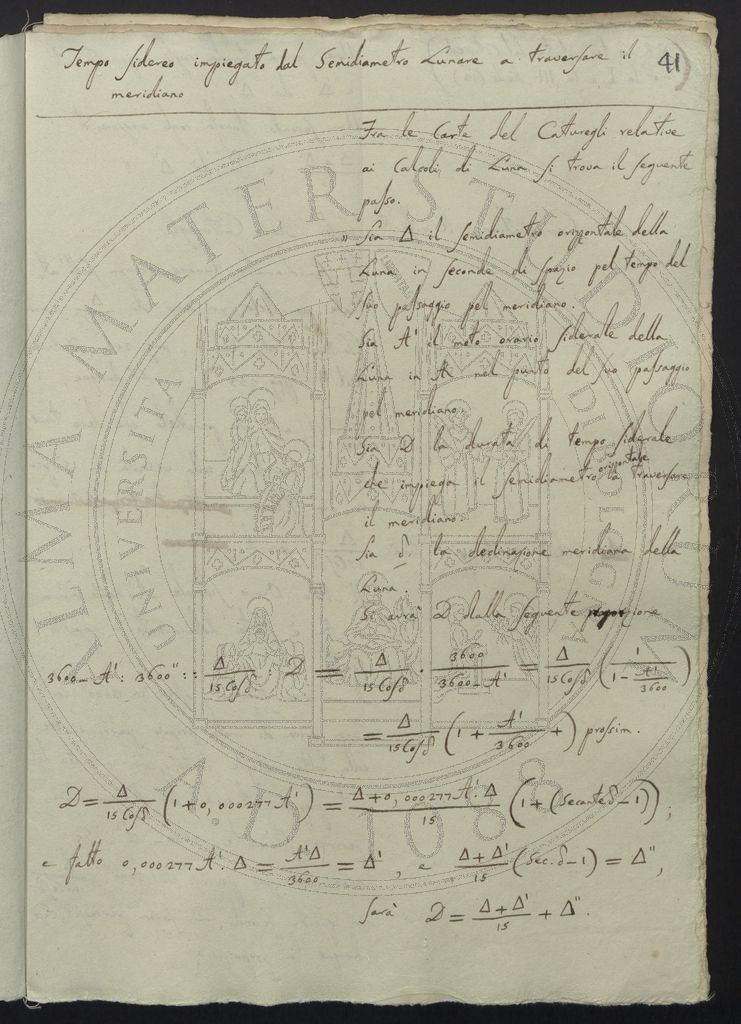 41
Tempo sidereo impiegato dal Semidiametro Lunare a traversare il
meridiano
Fra le Carte del Caturegli relative
ai Calcoli di Luna si trova il seguente
passo.
„ Sia Δ il semidiametro orizzontale della
Luna in seconde di spazio pel tempo del
suo passaggio pel meridiano.
Sia A' il moto orario siderale della
Luna in AR nel punto del suo passaggio
pel meridiano.
Sia D la durata di tempo siderale
che impiega il semidiametro orizzontale a traversare
il meridiano.
Sia δ la declinazione meridiana della
Luna.
Si avrà D dalla seguente proporzione
3600 - A' : 3600'' :: Δ/(15 Cos δ) : D = Δ/(15 Cos δ) · 3600/(3600 - A') = Δ/(15 Cos δ) (1/(1 - A'/3600))
= Δ/(15 Cos δ) (1 + A'/3600 +) prossim.
D = Δ/(15 Cos δ) (1 + 0,000277 A') = (Δ + 0,000277 A'. Δ)/15 (1 + (Secante δ - 1));
e fatto 0,000277 A'. Δ = A'Δ/3600 = Δ', e (Δ + Δ')/15 (Sec. δ - 1) = Δ'',
sarà D = (Δ + Δ')/15 + Δ''.
ALMA MATER STUDIORUM
UNIVERSITÀ DI BOLOGNA
A.D. 1088